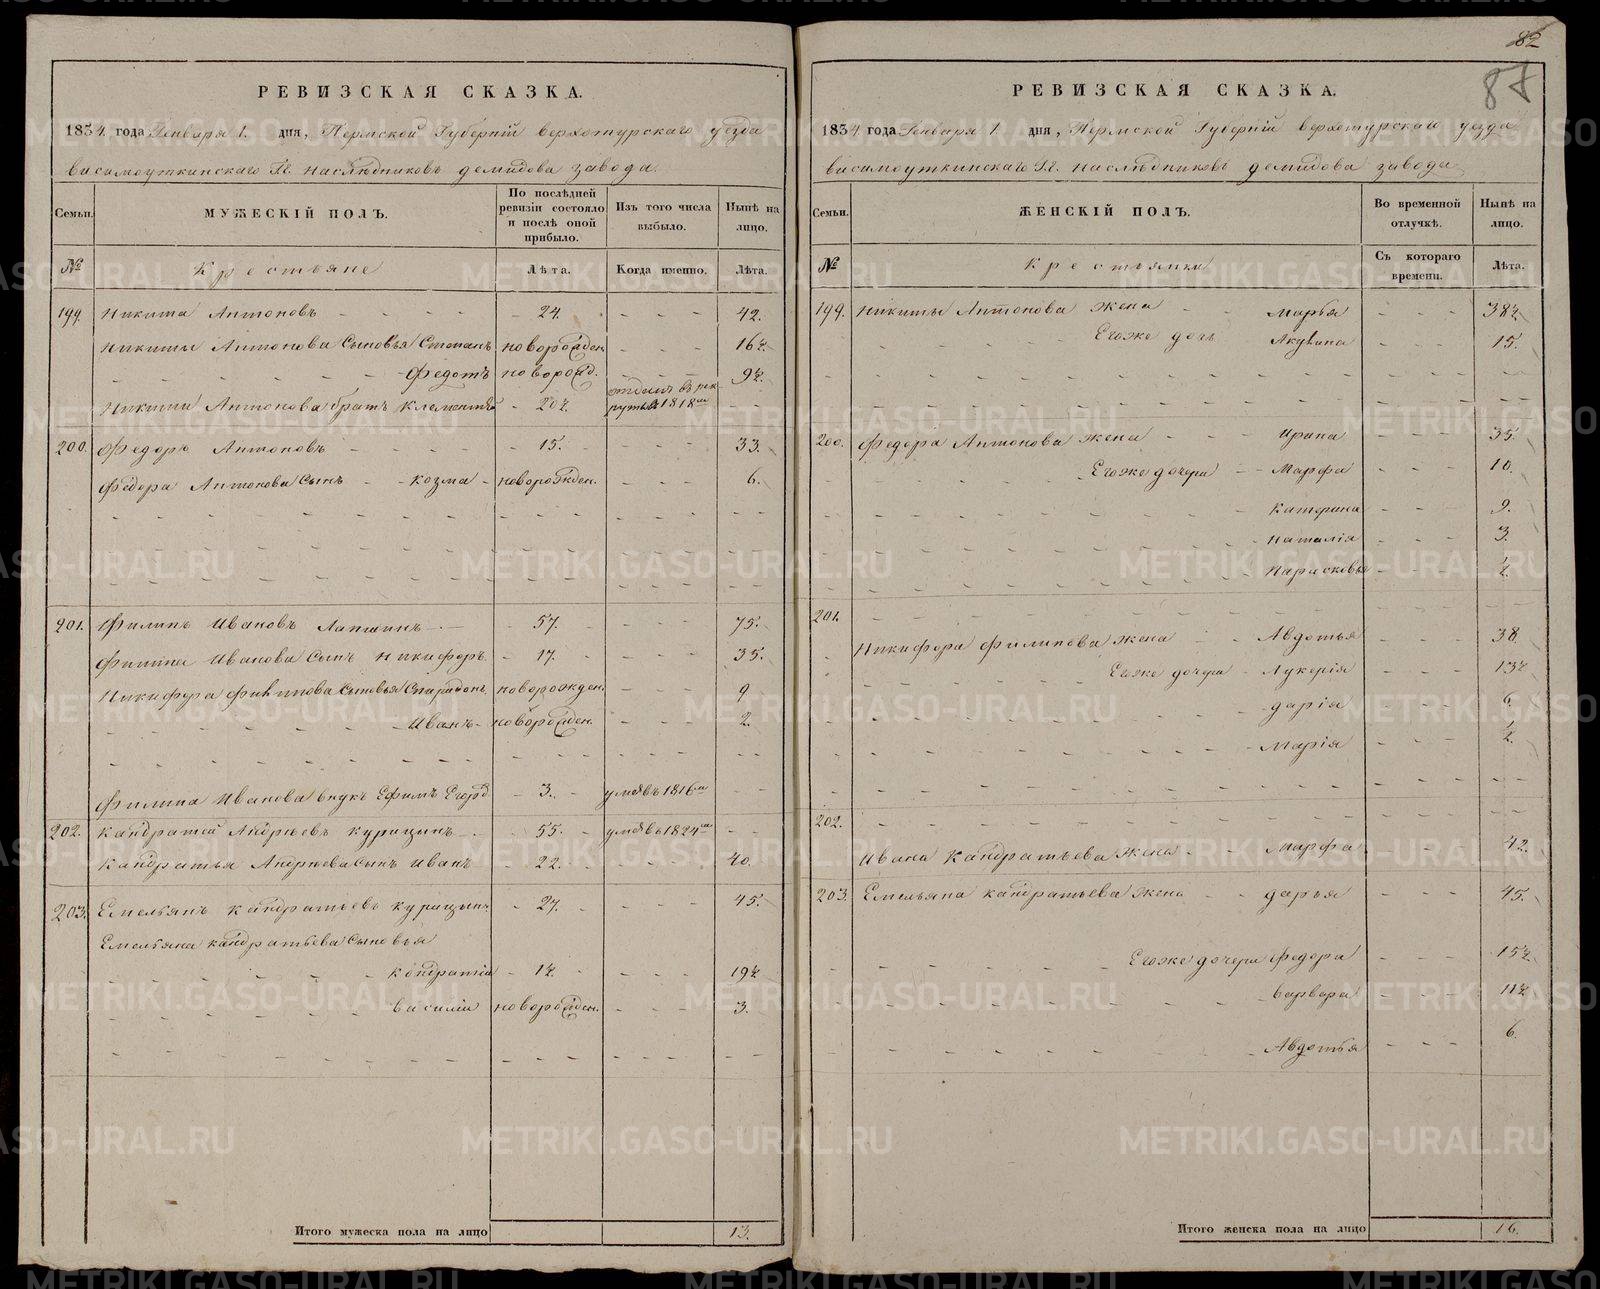 82
87
РЕВИЗСКАЯ СКАЗКА.
1834. года Генваря 1. дня, Пермской Губерніи верхотурскаго уезда
висимоуткинскаго Гг. наслѣдниковъ демидова завода.
Семьи. МУЖЕСКІЙ ПОЛЪ. По послѣдней ревизіи состояло и послѣ оной прибыло. Изъ того числа выбыло. Нынѣ на лицо.
№ Крестьяне Лѣта. Когда именно. Лѣта.
199. Никита Антоновъ 24. 42.
Никиты Антонова Сыновья Степанъ новорожден. 16½
Федотъ новорожд. 9½.
Никиты Антонова братъ Клементей 20½. отданъ въ рекруты въ 1818м
200. Федоръ Антоновъ 15. 33.
Федора Антонова Сынъ козма новорожден. 6.
201. Филипъ Ивановъ Лапшинъ 57. 75.
Филипа Иванова Сынъ Никифоръ 17. 35.
Никифора Филипова Сыновья Спиридонъ новорожден. 9
Иванъ новорожден. 2.
Филипа Иванова внукъ Ефимъ Егоров 3. умеъ въ 1816м
202. Кандратей Андреевъ курицынъ 55. умеъ въ 1824м
Кандратья Андреева Сынъ Иванъ 22. 40.
203. Емельянъ Кандратьевъ курицынъ 27. 45.
Емельяна кандратьева Сыновья
кондратіи 1½ 19½
василіи новорожден. 3.
Итого мужеска пола на лицо 13.
РЕВИЗСКАЯ СКАЗКА.
1834 года Генваря 1 дня, Пермской Губерніи верхотурскаго уезда
висимоуткинскаго Гг. наслѣдниковъ демидова завода
Семьи. ЖЕНСКІЙ ПОЛЪ. Во временной отлучкѣ. Нынѣ на лицо.
№ Крестьянки Съ котораго времени. Лѣта.
199. Никиты Антонова жена Марья 38½.
Егоже дочь Акулина 15.
200. Федора Антонова жена Ирина 35.
Егоже дочери Марфа 10.
Катерина 9.
Наталія 3.
Парасковья ½.
201.
Никифора филипова жена Авдотья 38
Егоже дочери Лукерія 13½
дарія 6.
Марія ½.
202.
Ивана Кандратьева жена Марфа 42.
203. Емельяна кандратьева жена дарья 45.
Егоже дочери Федора 15½
варвара 11½
Авдотья 6.
Итого женска пола на лицо 16.
METRIKI.GASO-URAL.RU